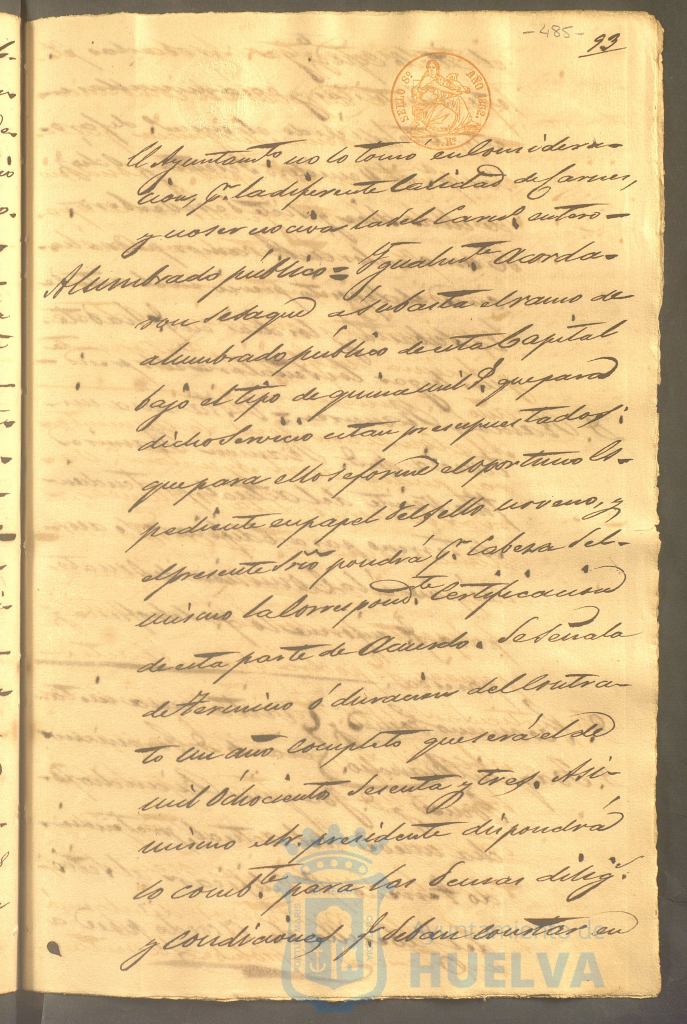 -485-
93
SELLO 9º AÑO 1862.
El Ayuntamto no lo tomó en Considera-
cion, pr. la diferente Calidad de Carnes,
y no ser nociva la del Carnl. entero =
Alumbrado público = Ygualmte Acorda-
ron se saque a Subasta el ramo de
alumbrado público de esta Capital
bajo el tipo de quince mil rs. que para
dicho Servicio estan presupuestados:
que para ello se forme el oportuno Es-
pediente en papel del Sello noveno, y
el presente Srio pondrá pr. Cabeza del
mismo la Correspondte Certificacion
de esta parte de Acuerdo. Se Señala
de termino ó duracion del Contra-
to un año completo que será el de
mil Ochociento Sesenta y tres. Asi-
mismo el Sr. presidente dispondrá
lo combte. para las demas diligs.
y condiciones qe. deban constar en
Ayuntamiento de
HUELVA